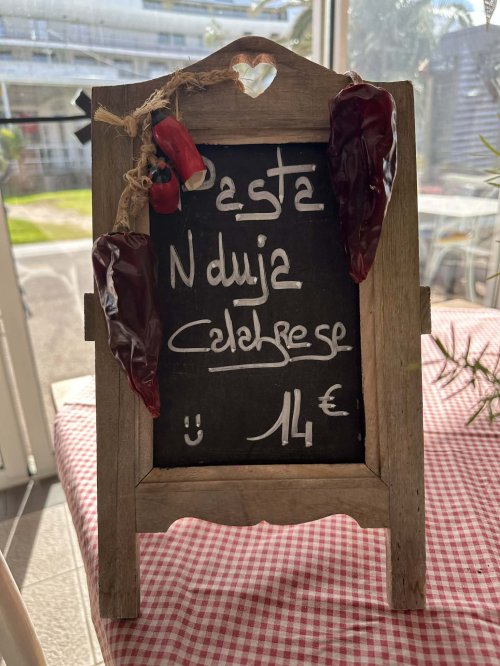 Pasta
Nduja
Calabrese
14 €